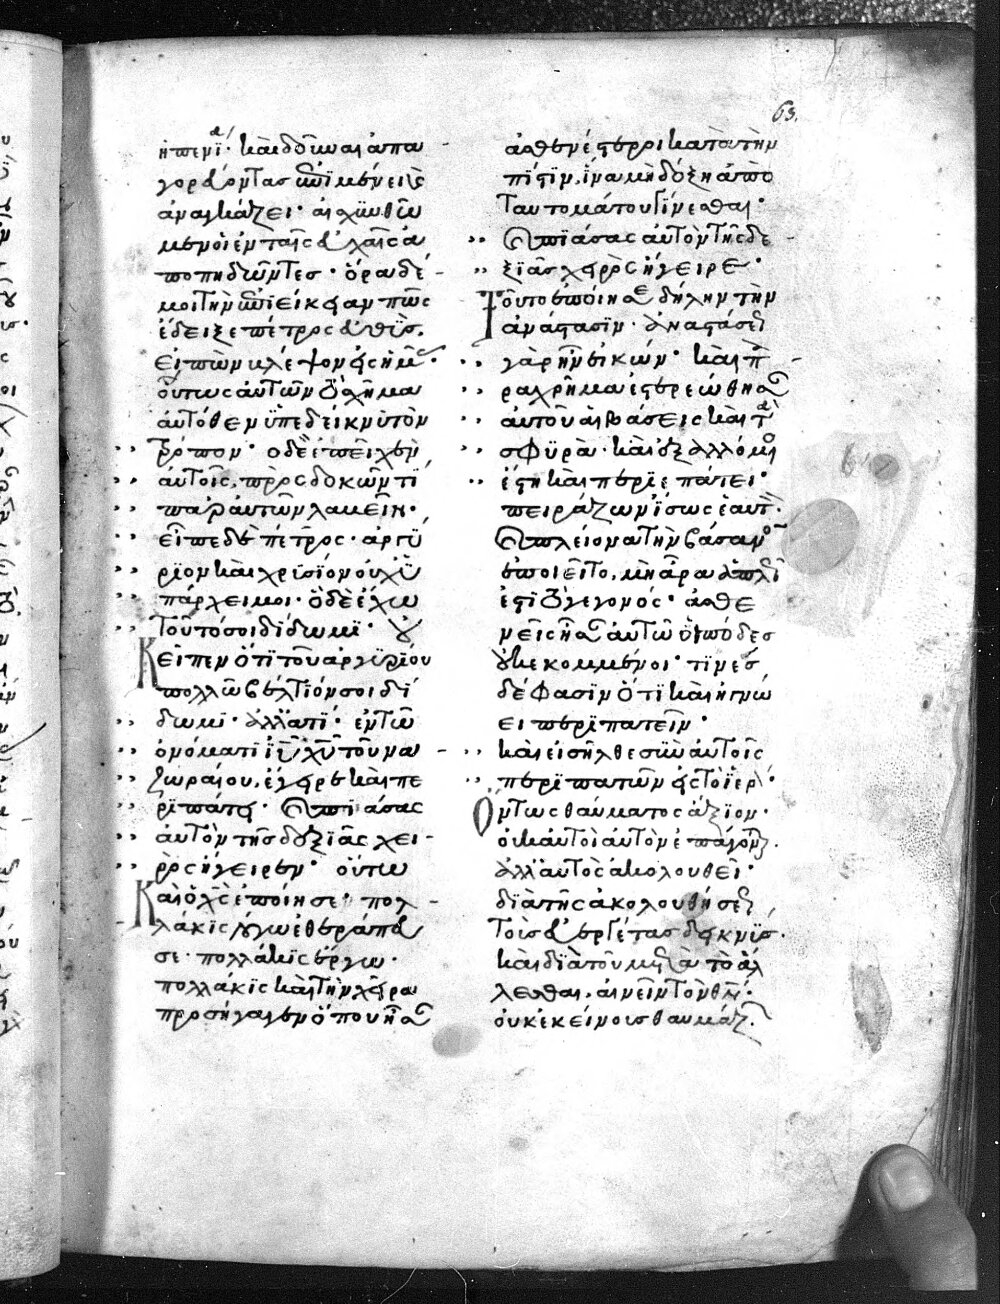 63.
ἡ πενία· καὶ δοκῶσι ἀπα
γορεύοντας ἐπιμένειν
ἀναγκάζει· αἰσχυνθῶ
μεν οἱ ἐν ταῖς εὐχαῖς ἀ
ποπηδῶντες· ὅρα δέ
μοι τὴν ἐπιείκειαν πῶς
ἔδειξε πέτρος εὐθὺς.
εἰπὼν βλέψον εἰς ἡμᾶς·
οὕτως αὐτῶν τὸ σχῆμα
αὐτόθεν ὑπεδείκνυ τὸν
τρόπον· ὁ δὲ ἐπεῖχεν
αὐτοῖς, προσδοκῶν τί
παρ' αὐτῶν λαβεῖν·
εἶπε δὲ πέτρος· ἀργύ
ριον καὶ χρυσίον οὐχ ὑ
πάρχει μοι· ὃ δὲ ἔχω
τοῦτό σοι δίδωμι· οὐ
κ εἶπεν ὅτι τοῦ ἀργυρίου
πολλῷ βέλτιόν σοι δί
δωμι· ἀλλὰ τί· ἐν τῷ
ὀνόματι ἰυ χυ τοῦ να
ζωραίου, ἔγειρε καὶ πε
ριπάτει· καὶ πιάσας
αὐτὸν τῆς δεξιᾶς χει
ρὸς ἤγειρεν· οὕτω
καὶ ὁ χς ἐποίησε· πολ
λάκις λόγω ἐθεράπευ
σε· πολλάκις ἔργω·
πολλάκις καὶ τὴν χεῖρα
προσήγαγεν ὅπου ἦσαν
ἀσθενέστεροι κατὰ τὴν
πίστιν, ἵνα μὴ δόξη ἀπὸ
ταυτομάτου γίνεσθαι·
καὶ πιάσας αὐτὸν τῆς δε
ξιᾶς χειρὸς ἤγειρε·
τοῦτο ἐποίησε δήλην τὴν
ἀνάστασιν· ἀναστάσεως
γὰρ ἦν εἰκών· καὶ πα
ραχρῆμα ἐστερεώθησαν
αὐτοῦ αἱ βάσεις καὶ τὰ
σφυρὰ· καὶ ἐξαλλόμενος
ἔστη καὶ περιεπάτει·
πειράζων ἴσως ἑαυτὸν·
ἐπιπλείονα τὴν βάσανον
ἐποιεῖτο, μὴ ἄρα ἁπλῶς
ἐστι τὸ γεγονός· ἀσθε
νεῖς ἦσαν αὐτῷ οἱ πόδες
οὐκ ἐκκομμένοι· τινὲς
δέ φασιν ὅτι καὶ ἠγνό
ει περιπατεῖν·
καὶ εἰσῆλθε σὺν αὐτοῖς
περιπατῶν εἰς τὸ ἱερόν·
ὄντως θαύματος ἄξιον·
οὐκ αὐτοὶ αὐτὸν ἐπάγουσι.
ἀλλ' αὐτὸς ἀκολουθεῖ·
διὰ τῆς ἀκολουθήσεως
τοὺς εὐεργέτας δεικνύς·
καὶ διὰ τοῦ μετὰ τὸ ἅλ
λεσθαι, αἰνεῖν τὸν θν·
οὐκ ἐκείνους θαυμάζων